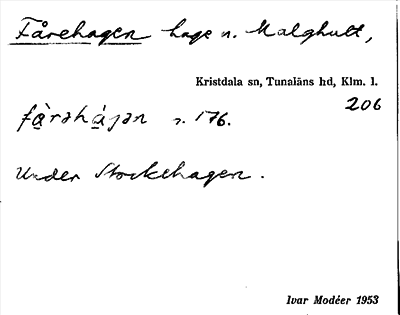 Fårehagen hage n. Malghult,
Kristdala sn, Tunaläns hd, Klm. l.
206
fà̱rəhá̱gən s. 176.
Under Stockehagen.
Ivar Modéer 1953